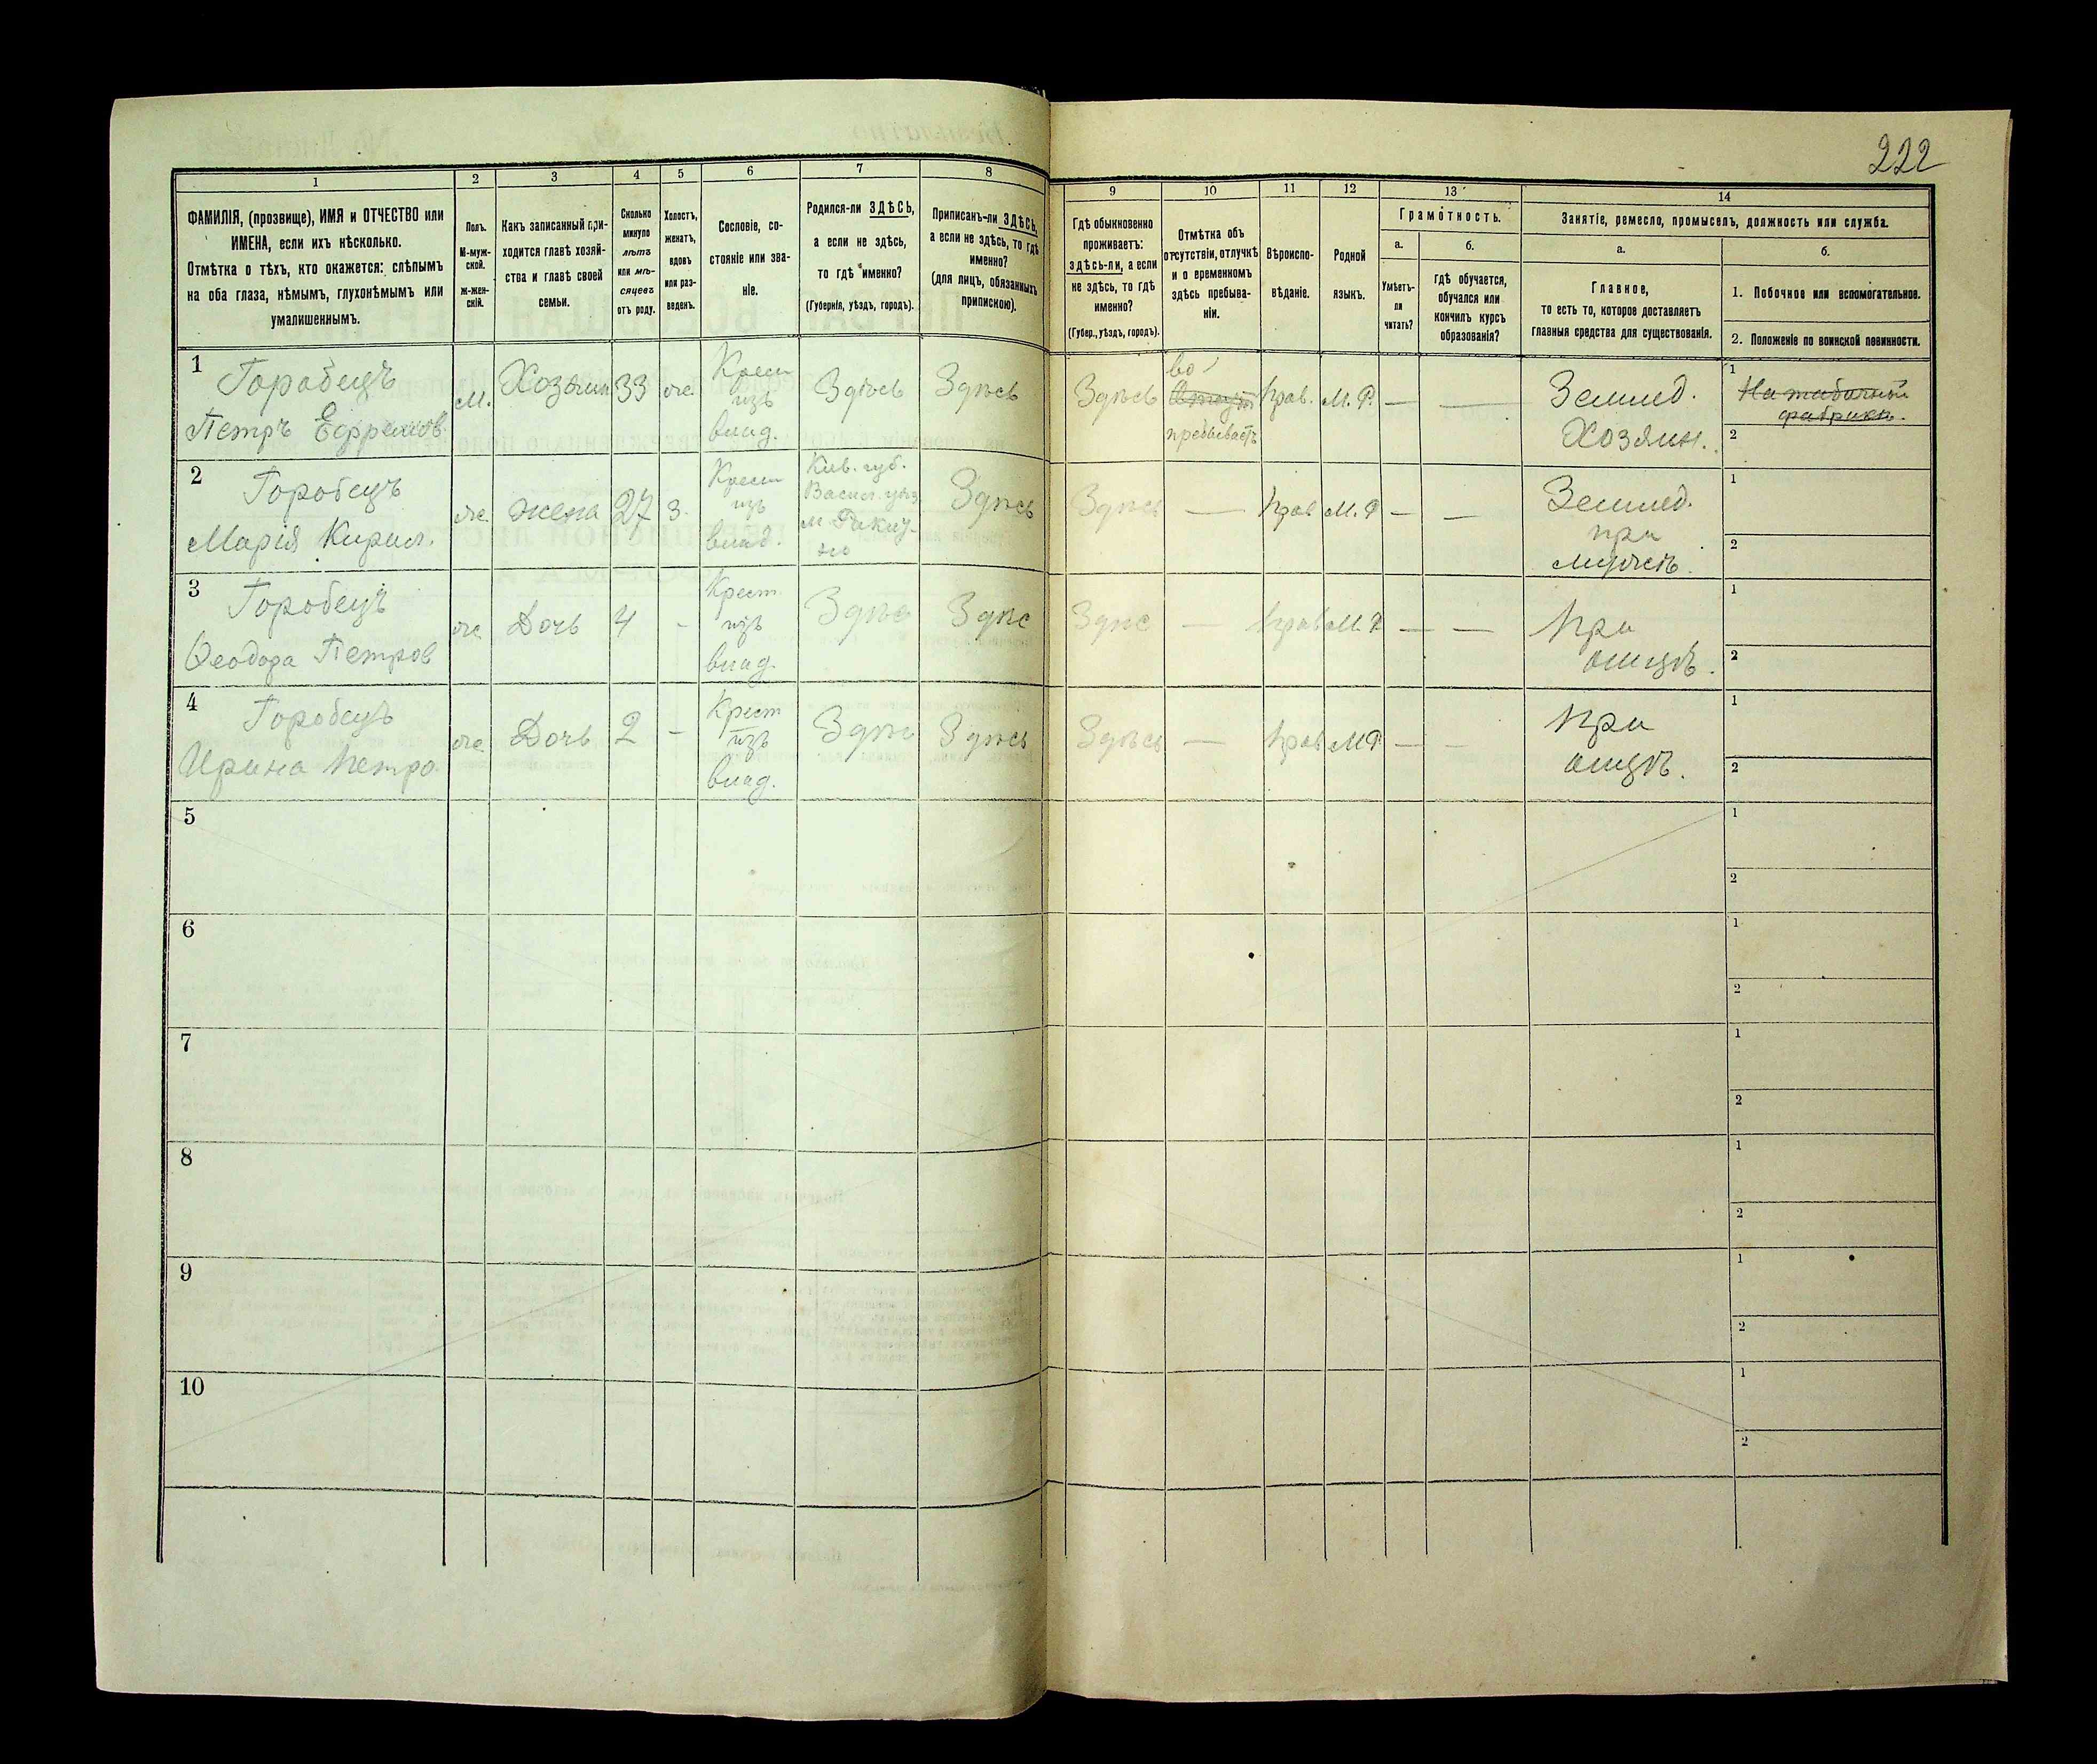 222
1
2
3
4
5
6
7
8
9
10
11
12
13
14
ФАМИЛІЯ, (прозвище), ИМЯ и ОТЧЕСТВО или
ИМЕНА, если ихъ нѣсколько.
Отмѣтка о тѣхъ, кто окажется: слѣпымъ
на оба глаза, нѣмымъ, глухонѣмымъ или
умалишеннымъ.
Полъ.
М-муж-
ской.
ж-жен-
скій.
Какъ записанный при-
ходится главѣ хозяй-
ства и главѣ своей
семьи.
Сколько
минуло
лѣтъ
или мѣ-
сяцевъ
отъ роду.
Холостъ,
женатъ,
вдовъ
или раз-
веденъ.
Сословіе, со-
стояніе или зва-
ніе.
Родился-ли ЗДѢСЬ,
а если не здѣсь,
то гдѣ именно?
(Губернія, уѣздъ, городъ).
Приписанъ-ли ЗДѢСЬ,
а если не здѣсь, то гдѣ
именно?
(для лицъ, обязанныхъ
припискою).
Гдѣ обыкновенно
проживаетъ:
здѣсь-ли, а если
не здѣсь, то гдѣ
именно?
(Губер., уѣздъ, городъ).
Отмѣтка объ
отсутствіи, отлучкѣ
и о временномъ
здѣсь пребыва-
ніи.
Вѣроиспо-
вѣданіе.
Родной
языкъ.
Грамотность.
а.
Умѣетъ-
ли
читать?
б.
Гдѣ обучается,
обучался или
кончилъ курсъ
образованія?
Занятіе, ремесло, промыселъ, должность или служба.
а.
Главное,
то есть то, которое доставляетъ
главныя средства для существованія.
б.
1. Побочное или вспомогательное.
2. Положеніе по воинской повинности.
1
Горобецъ
Петръ Ефремов.
М.
Хозяин
33
же.
Крест
изъ
влад.
Здѣсь
Здѣсь
Здѣсь
во
пребываетъ
Прав.
М.Р.
—
—
Землед.
Хозяин.
1
На табачной
фабрикѣ.
2
2
Горобецъ
Марія Кирил.
же.
жена
27
З.
Крест
изъ
влад.
Кив. губ.
Васил. уѣз
Здѣсь
Здѣсь
—
Прав
М.Р
—
—
Землед.
при
мужѣ.
1
2
3
Горобецъ
Ѳеодора Петров
же
Дочь
4
-
Крест
изъ
влад.
Здѣс
Здѣс
Здѣс
—
Прав
М.Р
—
—
При
отцѣ.
1
2
4
Горобецъ
Ирина Петро.
же.
Дочь
2
-
Крест
изъ
влад.
Здѣс
Здѣсь
Здѣсь
—
Прав
МР
—
-
При
отцѣ.
1
2
5
1
2
6
1
2
7
1
2
8
1
2
9
1
2
10
1
2